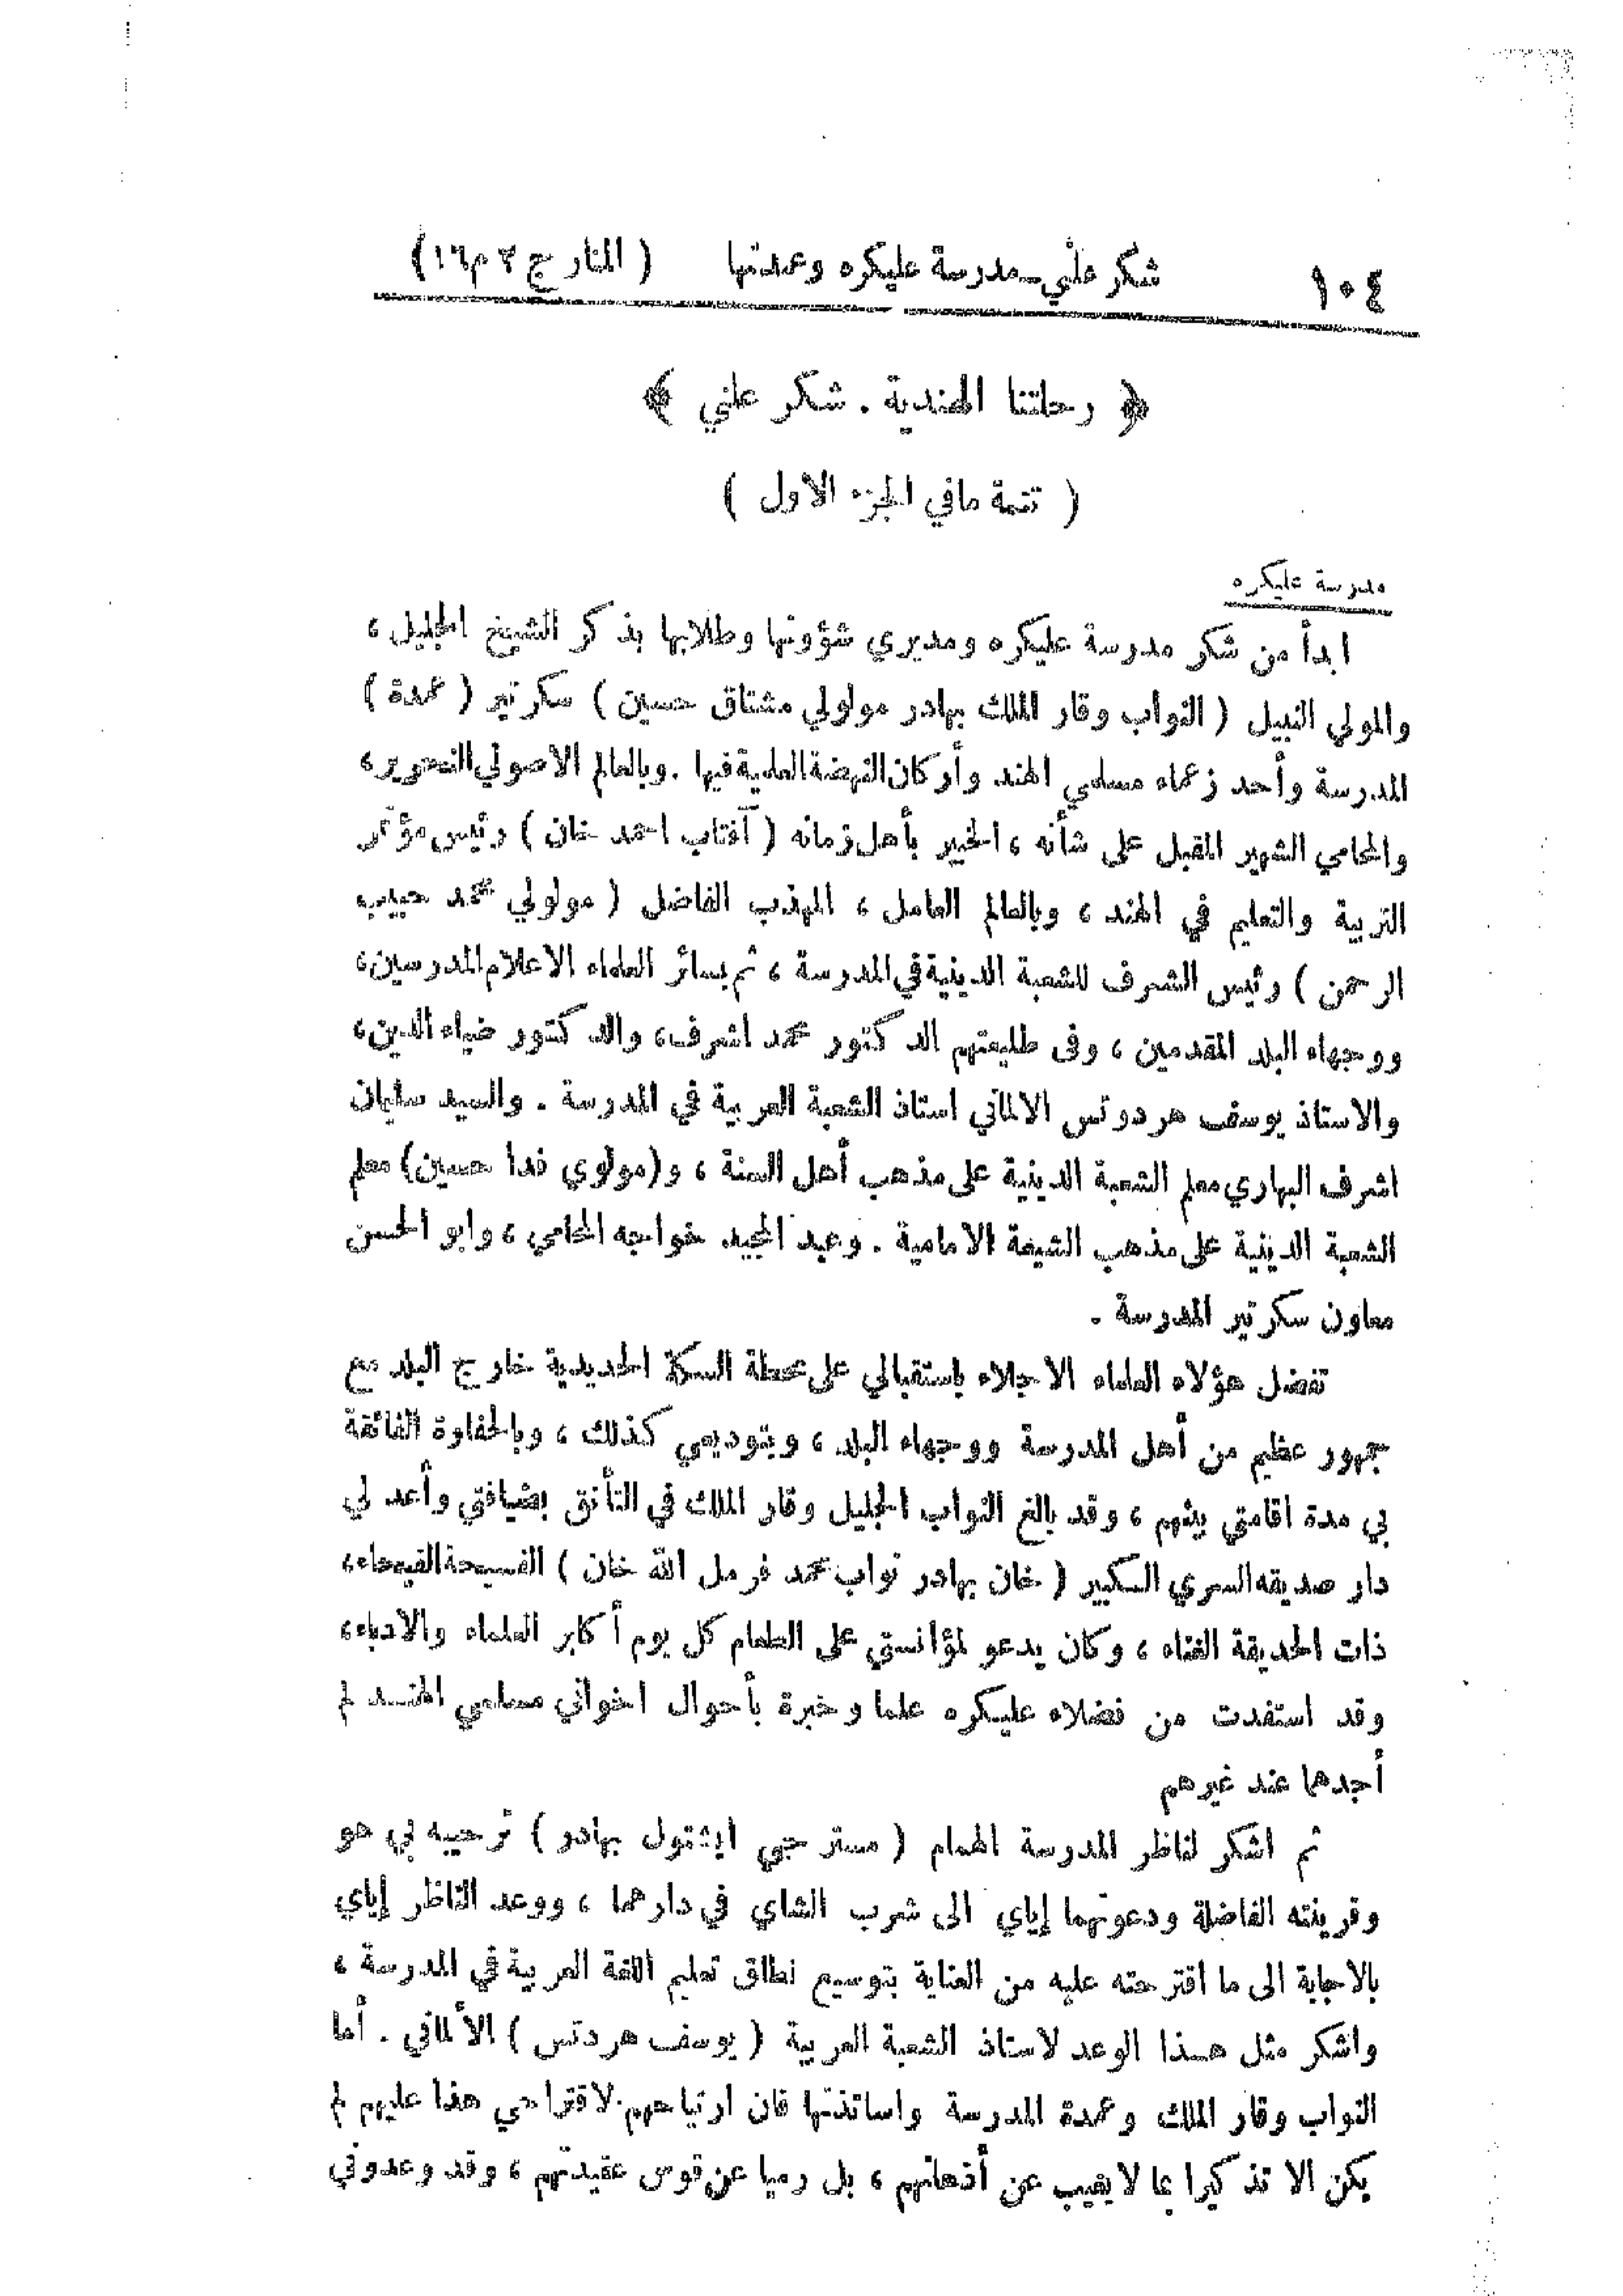 ١٠٤ شكر علني ـ مدرسة عليكره وعمدتها ( المنار ج ٢ م ١٦)
﴿ رحلتنا الهندية . شكر علني ﴾
( تتمة مافي الجزء الاول )
مدرسة عليكره
ابدأ من شكر مدرسة عليكره ومديري شؤونها وطلابها بذكر الشيخ الجليل ،
والمولي النبيل ( النواب وقار الملك بهادر مولولي مشتاق حسين ) سكرتير ( عمدة )
المدرسة وأحد زعماء مسلمي الهند وأركان النهضة العلمية فيها . وبالعالم الاصولي النحرير ،
والمحامي الشهير المقبل على شأنه ، الخبير بأهل زمانه ( آفتاب احمد خان ) رئيس مؤتمر
التربية والتعليم في الهند ، وبالعالم العامل ، المهذب الفاضل ( مولولي محمد حبيب
الرحمن ) رئيس الشرف للشعبة الدينية في المدرسة ، ثم بسائر العلماء الاعلام المدرسين ،
ووجهاء البلد المقدمين ، وفى طليعتهم الدكتور محمد اشرف ، والدكتور ضياء الدين ،
والاستاذ يوسف هردوتس الالماني استاذ الشعبة العربية في المدرسة . والسيد سليمان
اشرف البهاري معلم الشعبة الدينية على مذهب أهل السنة ، و(مولوي فدا حسين) معلم
الشعبة الدينية على مذهب الشيعة الامامية . وعبد المجيد خواجه المحامي ، وابو الحسن
معاون سكرتير المدرسة .
تفضل هؤلاء العلماء الاجلاء باستقبالي على محطة السكة الحديدية خارج البلد مع
جمهور عظيم من أهل المدرسة ووجهاء البلد ، وبتوديعي كذلك ، وبالحفاوة الفائقة
بي مدة اقامتي بينهم ، وقد بالغ النواب الجليل وقار الملك في التأنق بضيافتي وأعد لي
دار صديقه السري الكبير ( خان بهادر نواب محمد فرمل الله خان ) الفسيحة الفيحاء ،
ذات الحديقة الغناء ، وكان يدعو لمؤانستي على الطعام كل يوم أكابر العلماء والادباء ،
وقد استفدت من فضلاء عليكره علما وخبرة بأحوال اخواني مسلمي الهند لم
أجدها عند غيرهم
ثم اشكر لناظر المدرسة الهمام ( مستر جي ايشتول بهادر ) ترحيبه بي هو
وقرينته الفاضلة ودعوتهما إياي الى شرب الشاي في دارهما ، ووعد الناظر إياي
بالاجابة الى ما اقترحته عليه من العناية بتوسيع نطاق تعليم اللغة العربية في المدرسة ،
واشكر مثل هذا الوعد لاستاذ الشعبة العربية ( يوسف هردتس ) الألماني . أما
النواب وقار الملك وعمدة المدرسة واساتذتها فان ارتياحهم لاقتراحي هذا عليهم لم
يكن الا تذكيرا بما لا يغيب عن أذهانهم ، بل رميا عن قوس عقيدتهم ، وقد وعدوني